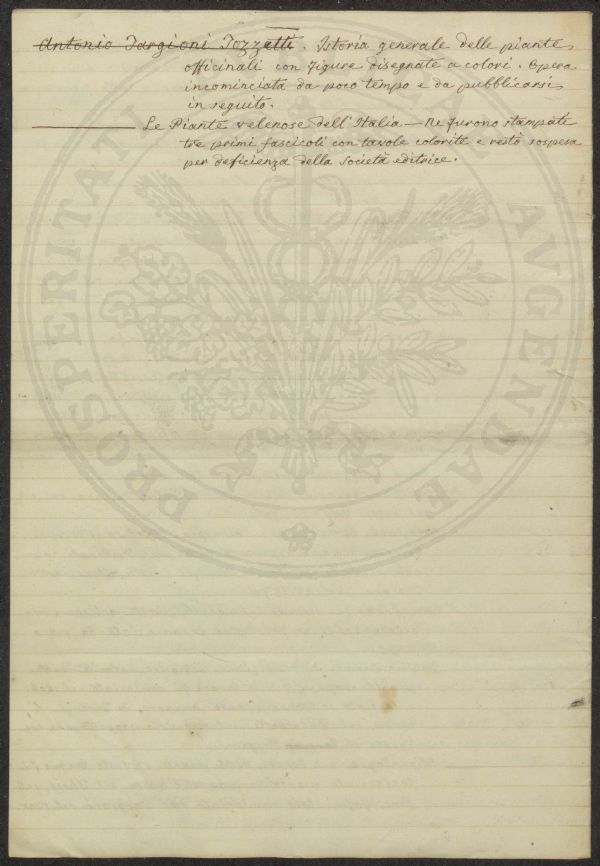 Antonio Targioni Tozzetti. Istoria generale delle piante
officinali con figure disegnate a colori. Opera
incominciata da poco tempo e da pubblicarsi
in seguito.
Le Piante velenose dell'Italia — Ne furono stampati
tre primi fascicoli con tavole colorite e restò sospesa
per deficienza della società editrice.
PROSPERITATI
AVGENDAE